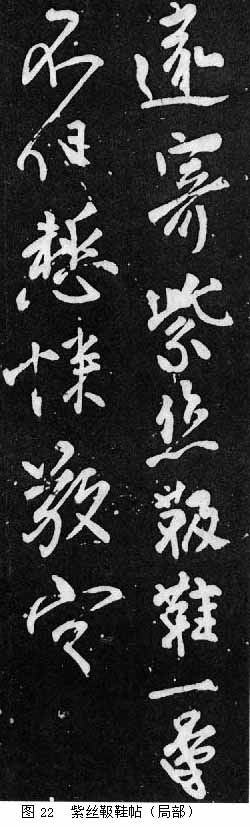 遠寄紫絲靸鞋一量
不但慙悚敬空
图 22 紫丝靸鞋帖（局部）